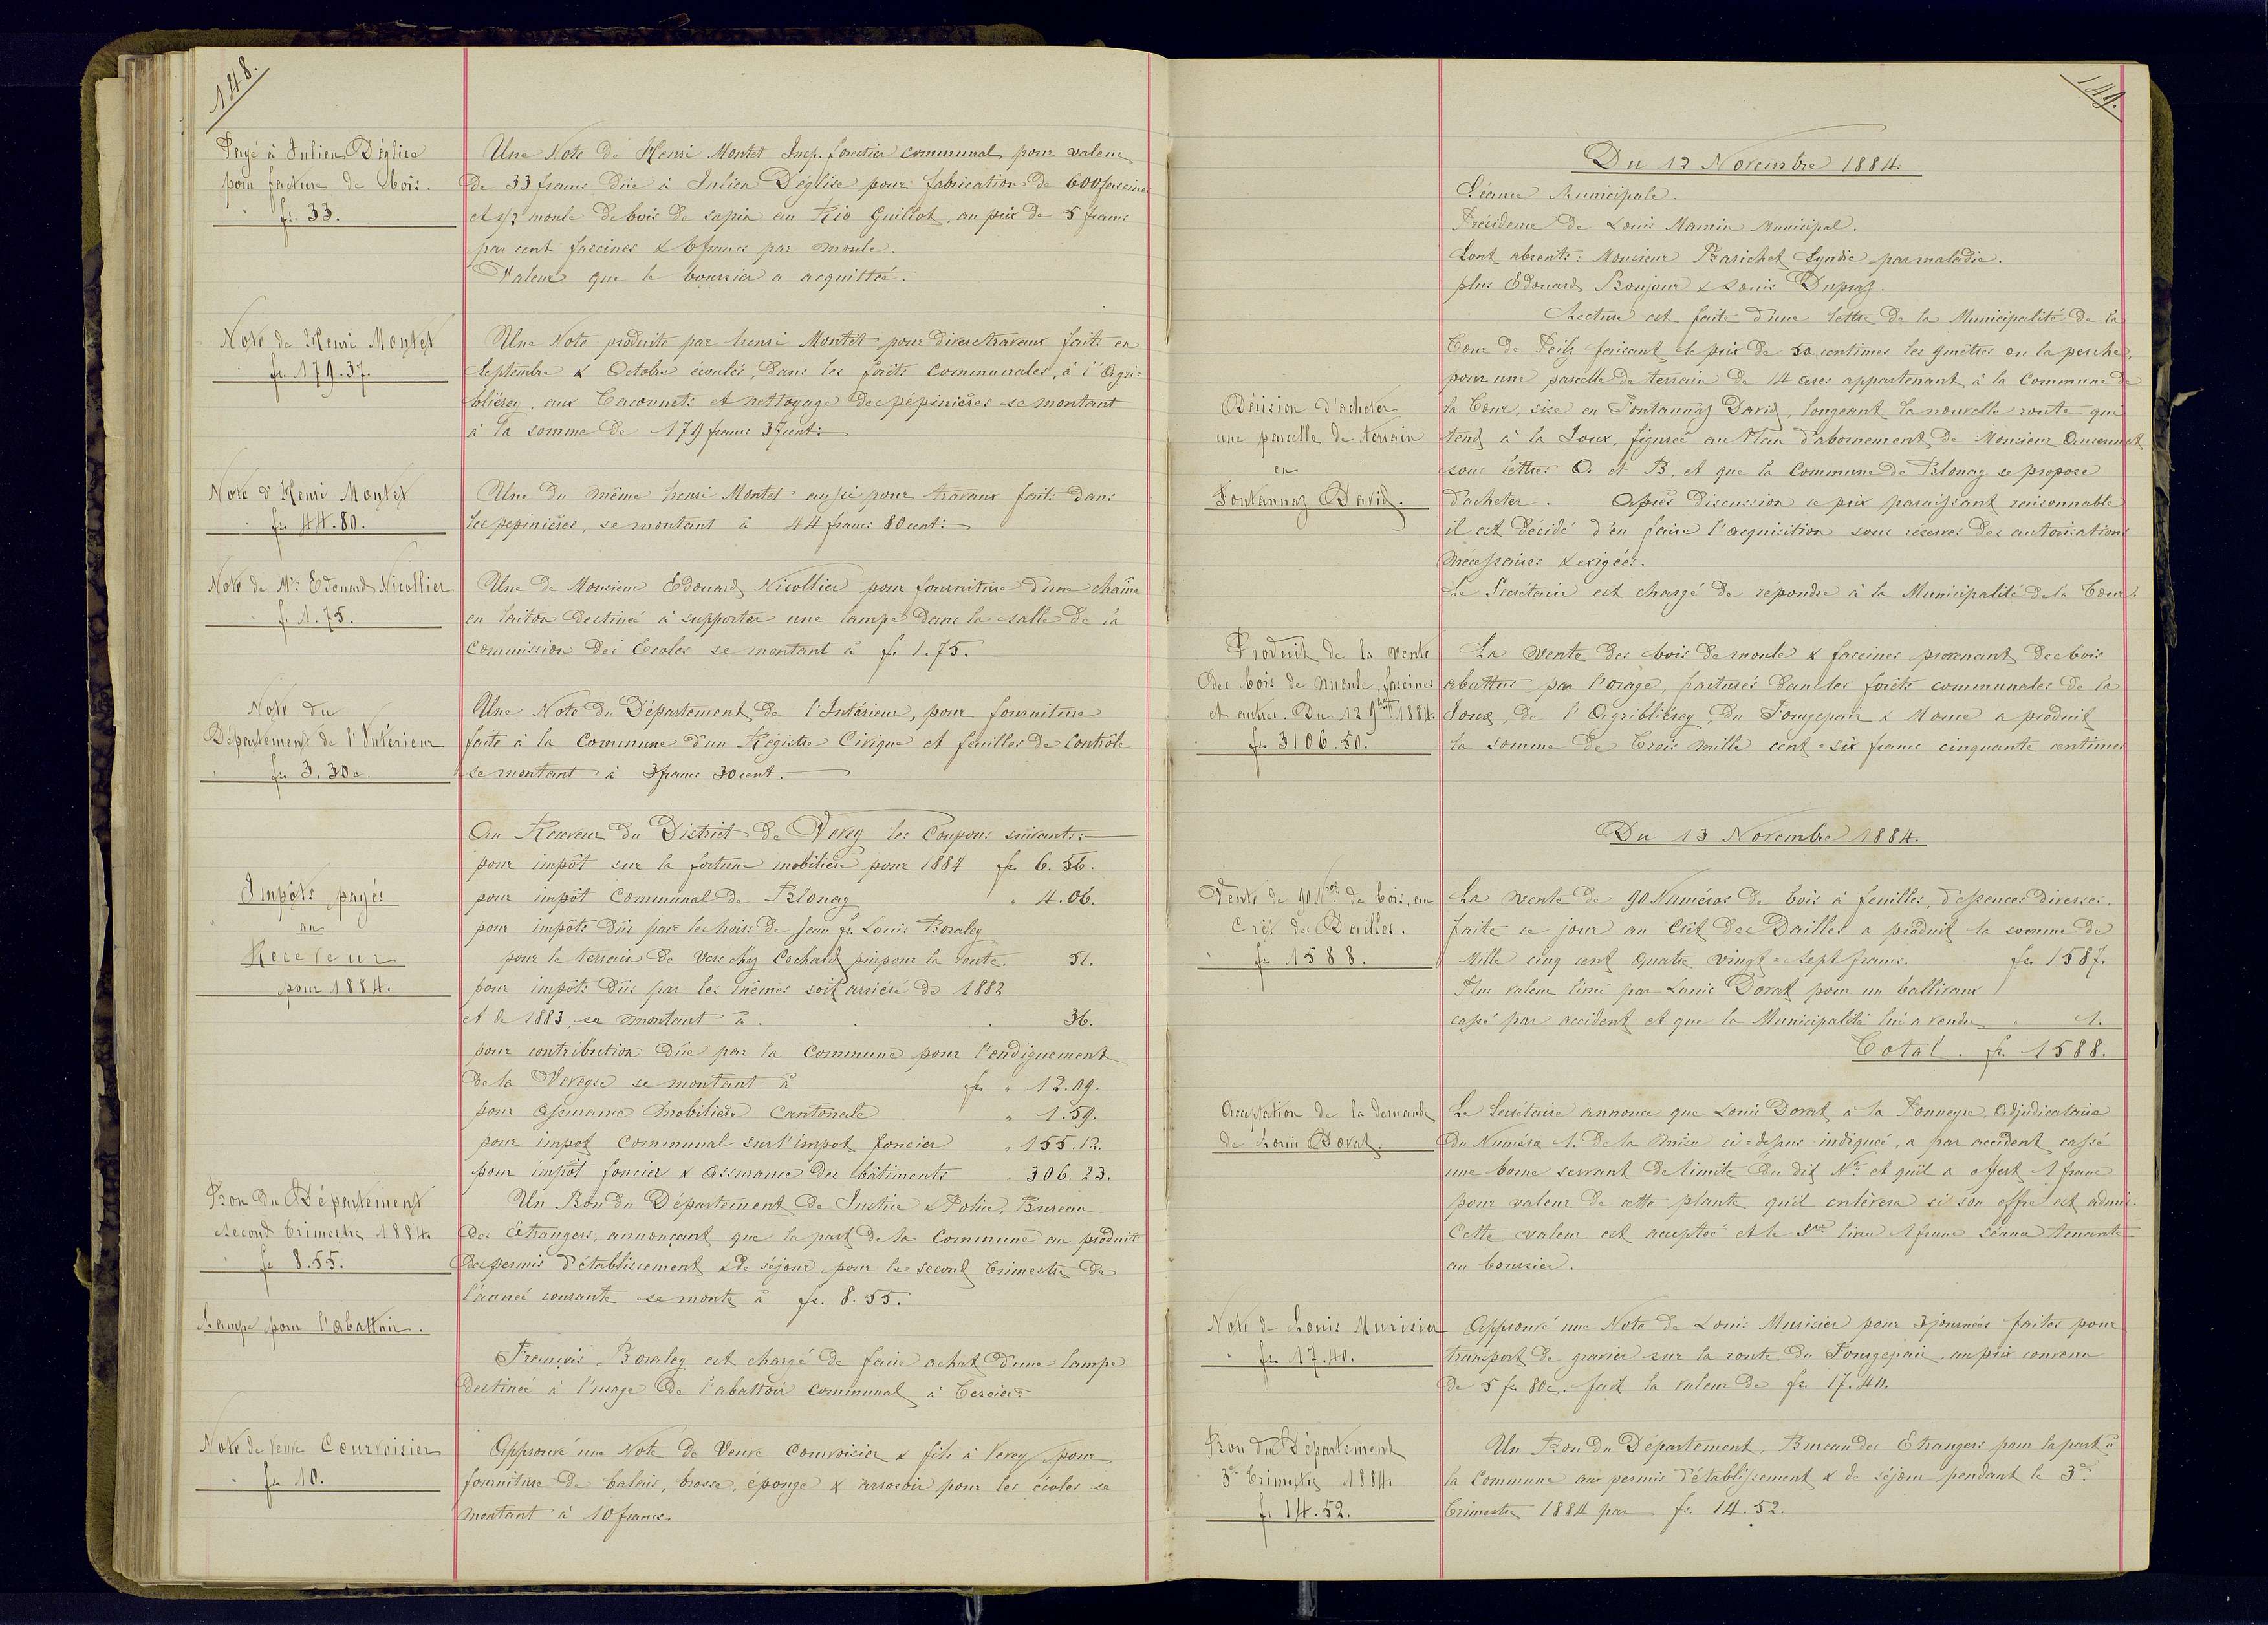 148.
Payé à Julien Déglise
pour facture de bois.
" fr. 33.
Une Note de Henri Montet Insp. forestier communal, pour valeur
de 33 francs dûe à Julien Déglise pour fabrication de 600 fascines
et 1/2 moule de bois de sapin au Rio Guillot, au prix de 5 francs
par cent fascines & 6 francs par moule.
Valeur que le boursier a acquittée.
Note de Henri Montet
" fr. 179.37.
Une Note produite par henri Montet pour divers travaux faits en
Septembre & Octobre écoulés, dans les forêts communales, à l'Agri=
bliérey, aux Tenconnets et nettoyage des pépinières se montant
à la somme de 179 francs 37 cent:
Note d'Henri Montet
" fr. 44.80.
Une du même henri Montet aussi pour travaux faits dans
les pepinières, se montant à 44 francs 80 cent:
Note de Mr: Edouard Nicollier
" f. 1.75.
Une de Monsieur Edouard Nicollier pour fourniture d'une chaîne
en laiton destiné à supporter une lampe dans la salle de la
Commission des Ecoles se montant à fr. 1.75.
Note du
Département de l'Intérieur
" fr. 3.30c.
Une Note du Département de l'Intérieur, pour fourniture
faite à la Commune d'un Régistre Civique et feuilles de Contrôle
se montant à 3 francs 30 cent.
Impôts payés
" au
Receveur
pour 1884.
Au Receveur du District de Vevey les Coupons suivants:
pour impôt sur la fortune mobilière pour 1884 fr. 6.56.
pour impôt Communal de Blonay " 4.06.
pour impôts dûs par les hoirs de Jean fs. Louis Bonaley
pour le terrain de Vers chez Cochard pris pour la route. 51.
pour impôts dûs par les mêmes soit arriéré de 1882
et de 1883, se montant à . . . 36.
pour contribution dûe par la Commune pour l'endiguement
de la Veveyse se montant à fr. " 12.09.
pour Assurance Mobilière Cantonale " 1.59.
pour impot Communal sur l'impot foncier " 155.12.
pour impôt foncier & Assurance des bâtiments " 306.23.
Bon du Département
second trimestre 1884.
" fr. 8.55.
Un Bon du Département de Justice & Police, Bureau
des Etrangers, annonçant que la part de la Commune au produit
des permis d'établissement & de séjour pour le second trimestre de
l'année courante se monte à fr. 8.55.
Lampe pour l'abattoir.
François Bonaley est chargé de faire achat d'une lampe
destinée à l'usage de l'abattoir communal à Tercier.
Note de Veuve Courvoisier
" fr. 10.
Approuvé une Note de Veuve Courvoisier & fils à Vevey pour
fourniture de balais, brosse, éponge & arrosoir pour les écoles se
montant à 10 francs.
149.
Du 12 Novembre 1884.
Séance Municipale.
Présidence de Louis Mamin Municipal.
Sont absents: Monsieur Barichet Syndic par maladie.
plus Edouard Bonjour & Louis Dupraz.
Lecture est faite d'une lettre de la Municipalité de la
Tour de Peilz faisant le prix de 50 centimes les quêttres ou la perche,
pour une parcelle de terrain de 14 ares appartenant à la Commune de
la Tour, sise en Fontannaz David, longeant la nouvelle route qui
tend à la Joux, figurée au Plan d'abornement de Monsieur Ansermet
sous lettres A. et B. et que la Commune de Blonay se propose
d'acheter. Après discussion ce prix paraissant raisonnable
il est décidé d'en faire l'acquisition sous réserves des autorisations
nécessaires & exigées.
Le Secrétaire est chargé de répondre à la Municipalité de la Tour.
Décision d'acheter
une parcelle de terrain
en
Fontannaz David.
Produit de la vente
des bois de moule, fascines
et autres. Du 12 9bre 1884.
" fr. 3106.50.
La vente des bois de moule & fascines provenant des bois
abattus par l'orage, facturés dans les forêts communales de la
Joux, de l'Agribliérey, du Fougepair & Mouce a produit
la somme de Trois mille cent=six francs cinquante centimes
Du 13 Novembre 1884.
Vente de 90 Nos: de bois, au
Crêt des Dailles.
" fr. 1588.
La vente de 90 Numéros de bois à feuilles, d'essences diverses.
faite ce jour au Crêt des Dailles a produit la somme de
Mille cinq cent quatre vingt=sept francs. fr. 1587.
Plus valeur livrée par Louis Dovat pour un balliveaux
cassé par accident et que la Municipalité lui a vendu " 1.
Total. fr. 1588.
Acceptation de la demande
de Louis Dovat.
Le Secrétaire annonce que Louis Dovat à la Tonneyre, Adjudicataire
du Numéro 1. de la mise ci=dessus indiquée, a par accident cassé
une borne servant de limite du dit No: et qu'il a offert 1 franc
pour valeur de cette plante qu'il enlèvera si son offre est admis.
Cette valeur est acceptée et le Sieur livre 1 franc séance tenante
au boursier.
Note de Louis Murisier
" fr. 17.40.
Approuvé une Note de Louis Murisier pour 3 journées faites pour
transport de gravier sur la route du Fougepair, au prix convenu
de 5 fr. 80c. fait la valeur de fr. 17.40.
Bon du Département
3e trimestre 1884.
fr. 14.52.
Un Bon du Département, Bureau des Etrangers pour la part à
la Commune aux permis d'établissement & de séjour pendant le 3e.
trimestre 1884 par fr. 14.52.